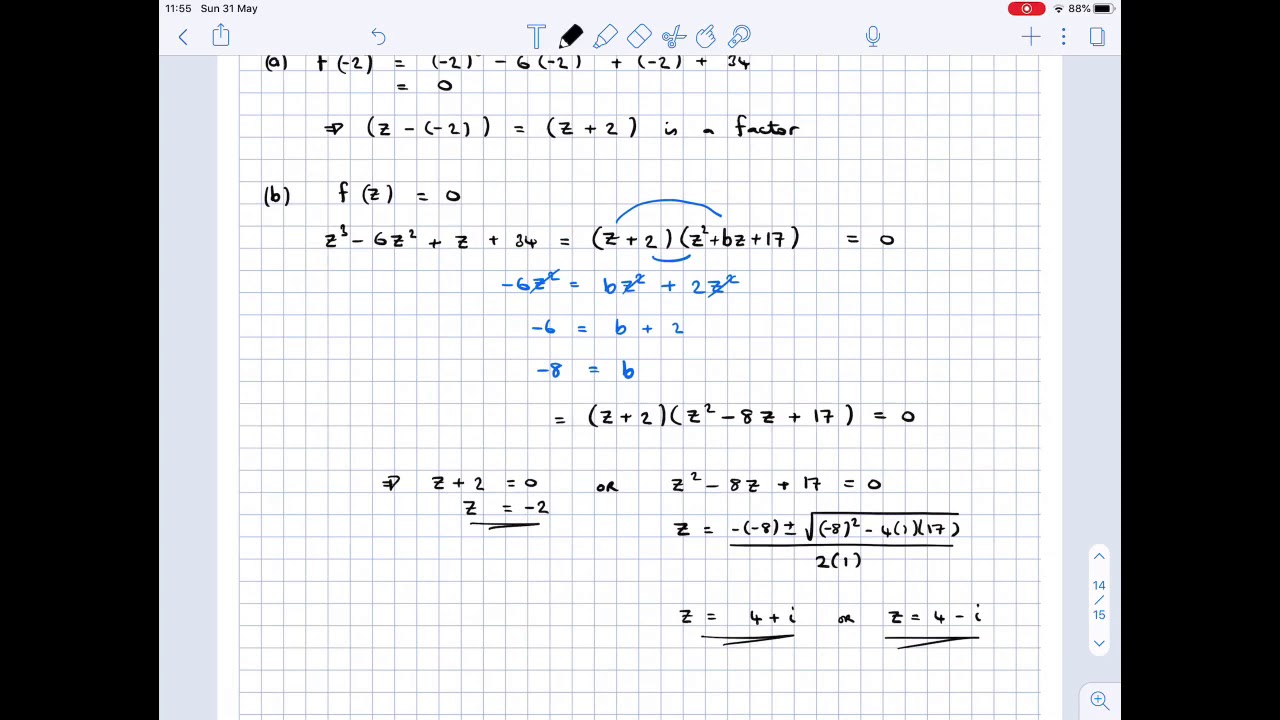 11:55 Sun 31 May 88%
T
(a) f(-2) = (-2)³ - 6(-2) + (-2) + 34
= 0
⇒ (z - (-2)) = (z + 2) is a factor
(b) f(z) = 0
z³ - 6z² + z + 34 = (z + 2)(z² + bz + 17) = 0
-6z² = bz² + 2z²
-6 = b + 2
-8 = b
= (z + 2)(z² - 8z + 17) = 0
⇒ z + 2 = 0 or z² - 8z + 17 = 0
z = -2
z = -(-8) ± √(-8)² - 4(1)(17)
2(1)
14
/
15
z = 4 + i or z = 4 - i